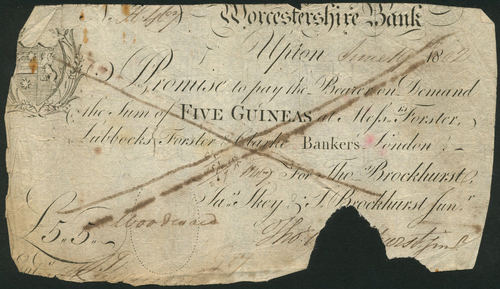 Worcestershire Bank
Upton June 18
I Promise to pay the Bearer on Demand
the Sum of FIVE GUINEAS at Mess.rs Forster,
Lubbocks Forster & Clarke Bankers London
For Tho.s Brockhurst,
Ja.s Skey & T. Brockhurst Jun.r
£5„5„